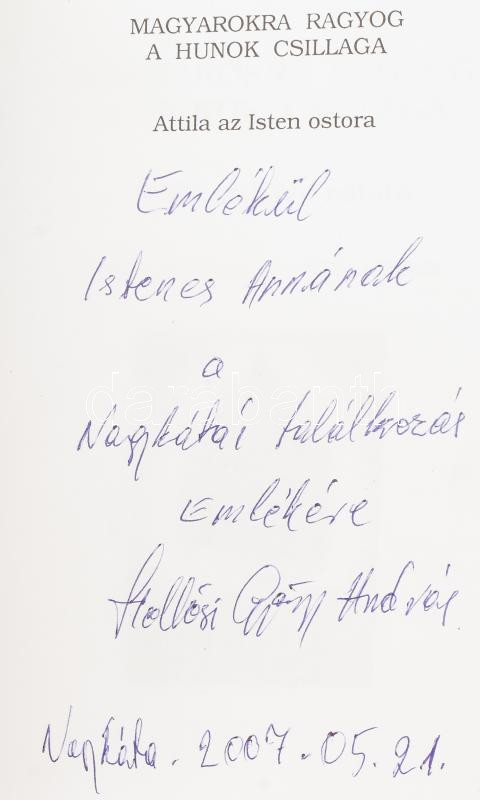 MAGYAROKRA RAGYOG
A HUNOK CSILLAGA
Attila az Isten ostora
Emlékül
Istenes Annának
a
darabanth
Nagykátai találkozás
Emlékére
Hollósi György András
Nagykáta. 2007.05.21.